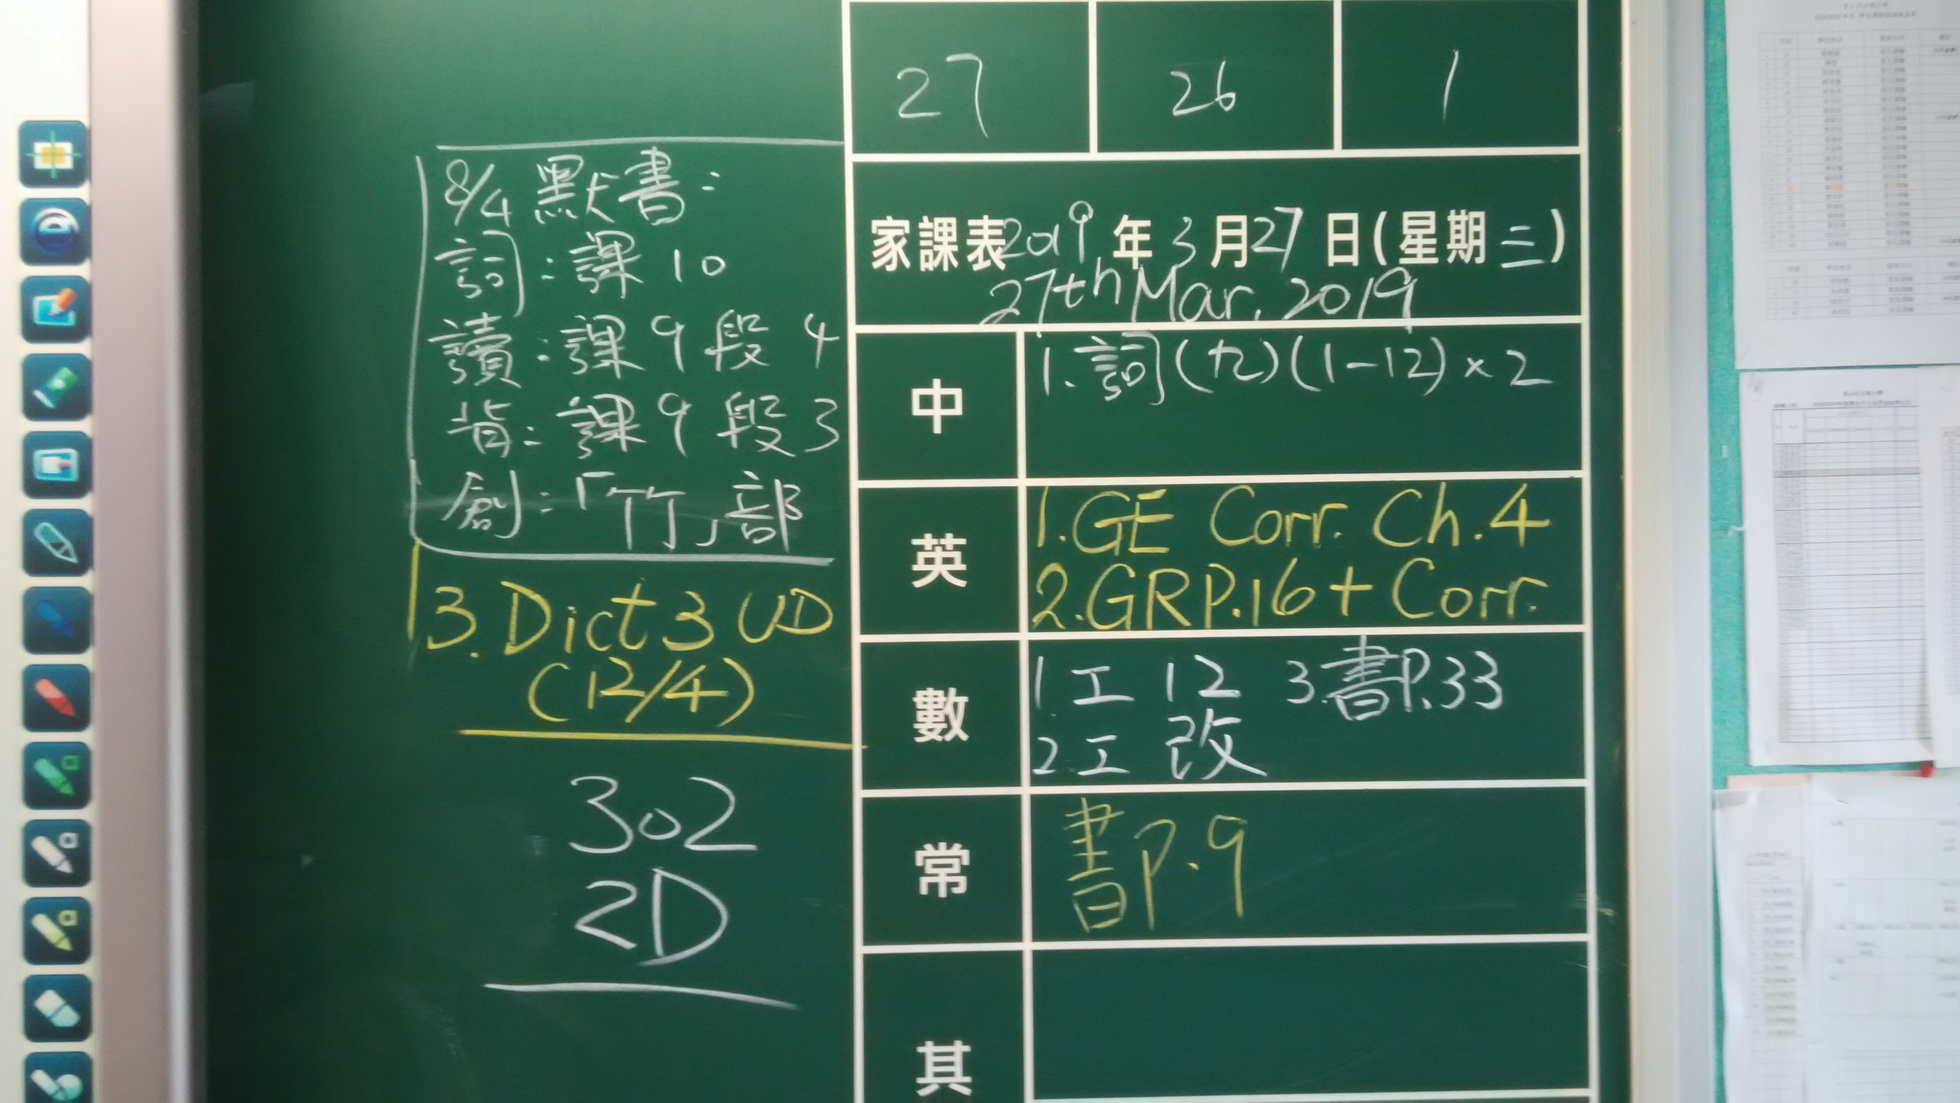 27 26 1
家課表2019年3月27日(星期三)
27th Mar, 2019
中 1. 詞(十二)(1-12)×2
英 1. GE Corr. Ch.4
2. GRP.16 + Corr.
3. Dict 3 UD
(12/4)
數 1 工 12 3. 書P.33
2 工 改
常 書P.9
其
8/4 默書:
詞:課10
讀:課9段4
背:課9段3
創:「竹」部
302
2D